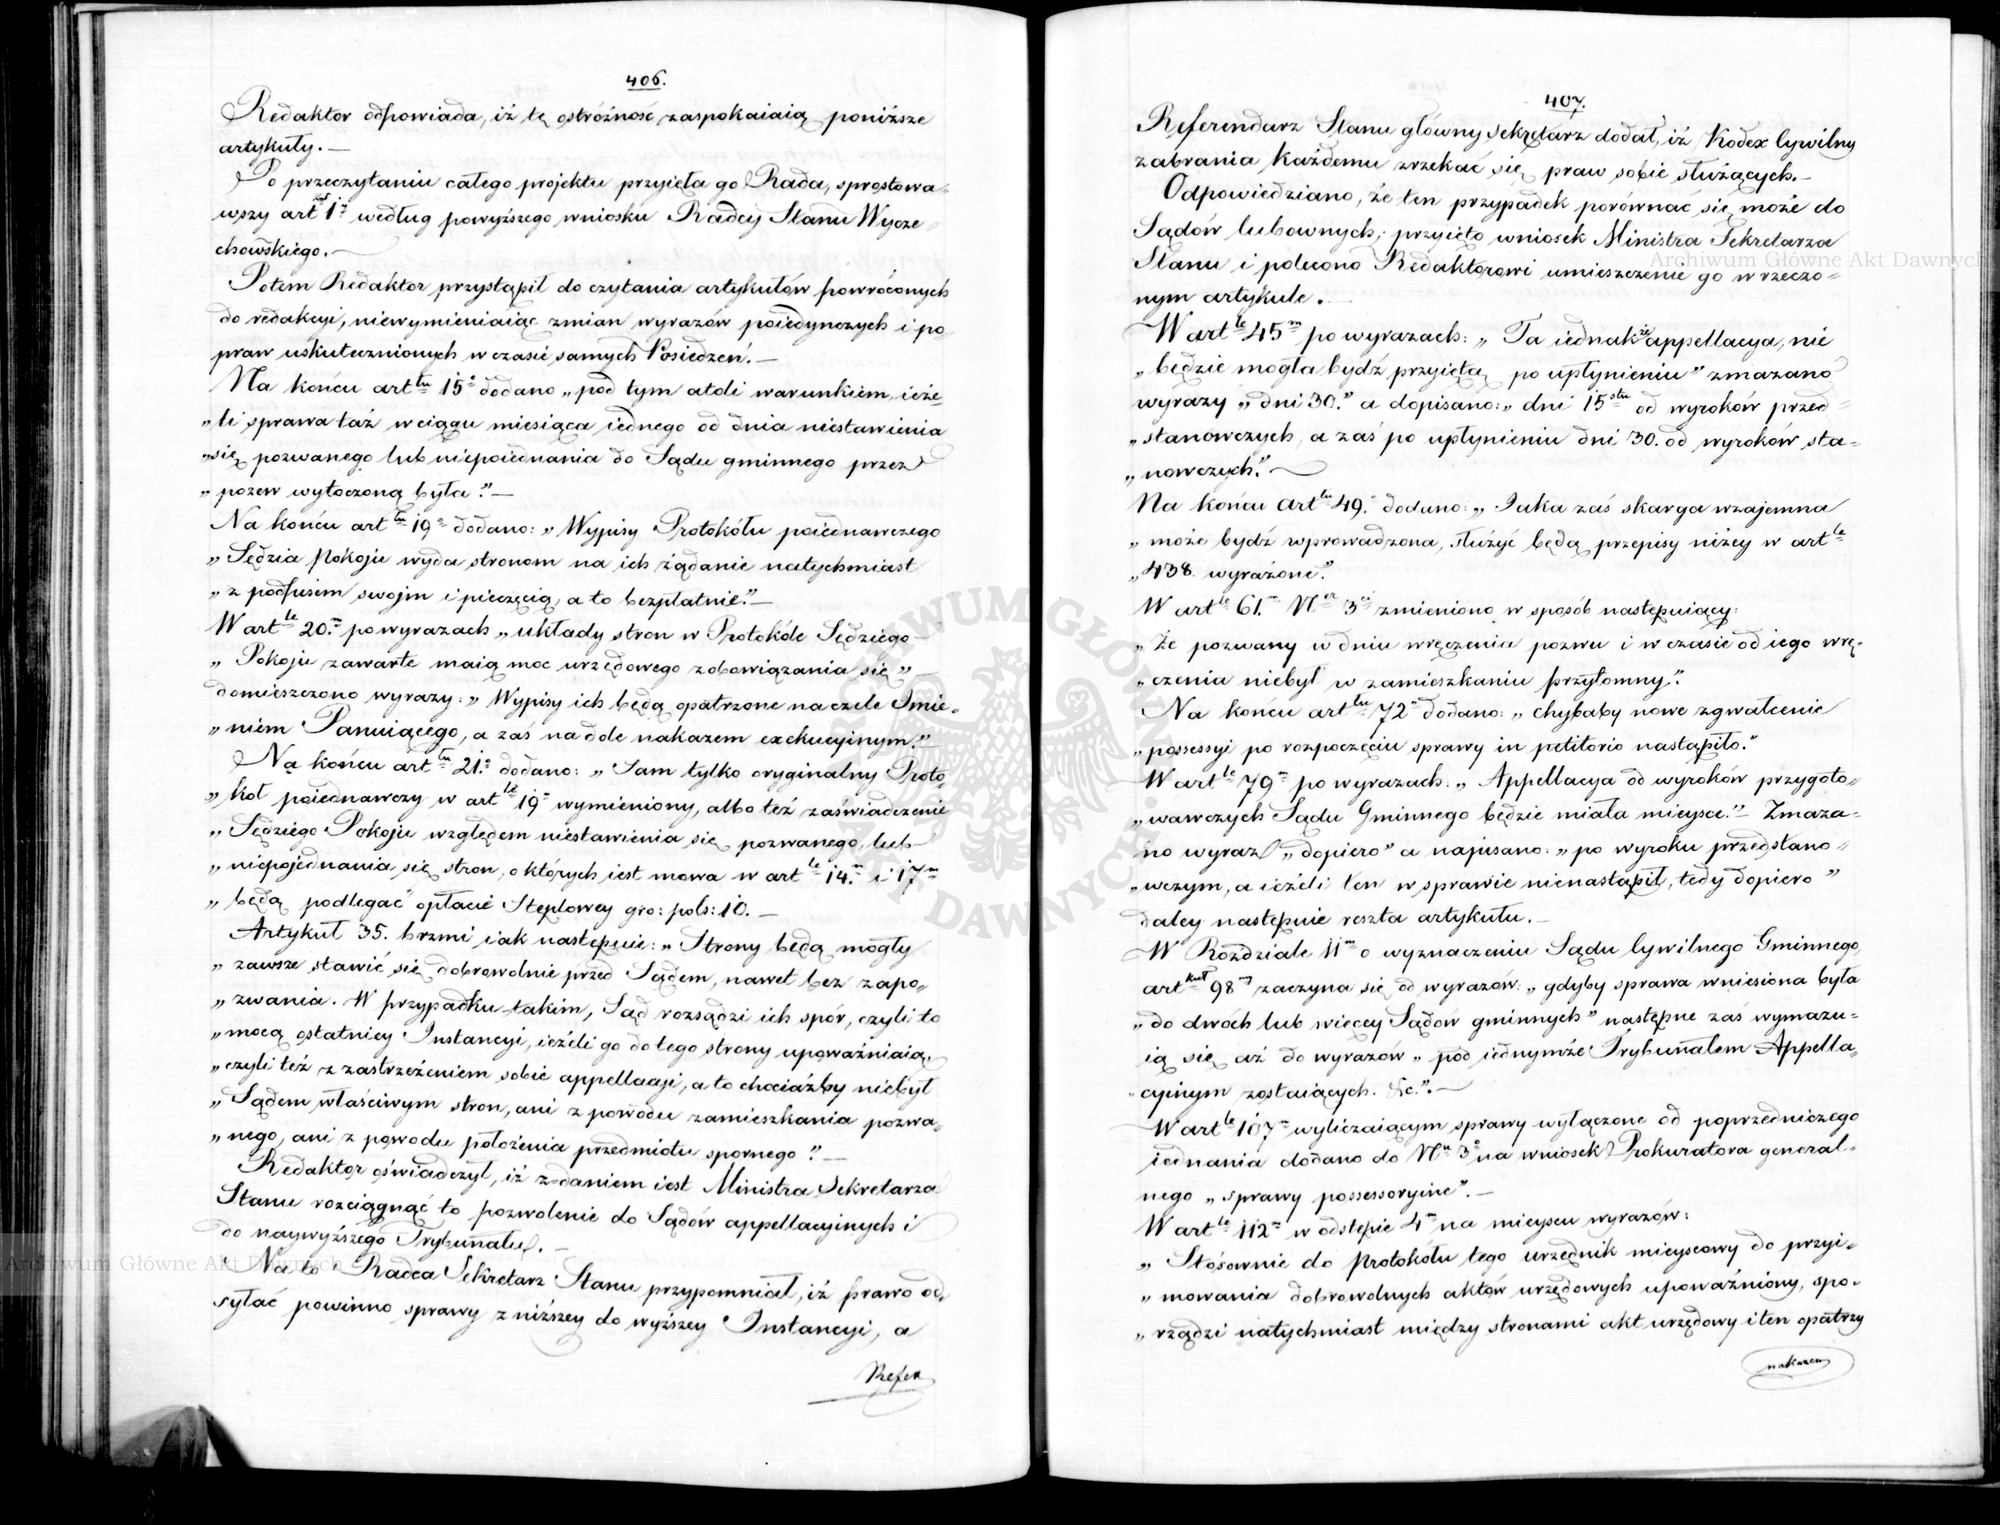 406.
Redaktor odpowiada, iż tę ostróżność zaspokaiaią poniższe
artykuły. —
Po przeczytaniu całego projektu przyięła go Rada, sprostowa-
wszy art 1 według powyższego wniosku Radcy Stanu Wycze-
chowskiego. —
Potem Redaktor przystąpił do czytania artykułów powróconych
do redakcyi, niewymieniaiąc zmian wyrazów poiedynczych i po-
praw uskutecznionych w czasie samych Posiedzeń. —
Na końcu art tu 15 o dodano „pod tym atoli warunkiem, ieże-
„li sprawa taż w ciągu miesiąca iednego od dnia niestawienia
„się pozwanego lub niepoiednania do Sądu gminnego przez
„pozew wytoczoną była.” —
Na końcu art tu 19 o dodano: „Wypisy Protokółu poiednawczego
„Sędzia Pokoju wyda stronom na ich żądanie natychmiast
„z podpisem swojm i pieczęcią, a to bezpłatnie.” —
W art le 20. m po wyrazach „układy stron w Protokóle Sędziego
„Pokoju zawarte maią moc urzędowego zobowiązania się” —
domieszczono wyrazy: „Wypisy ich będą opatrzone na czele Imie-
„niem Panuiącego, a zaś na dole nakazem exekucyinym.” —
Na końcu art tu 21. o dodano: „Sam tylko oryginalny Proto-
„kół poiednawczy w art le 19 wymieniony, albo też zaświadczenie
„Sędziego Pokoju względem niestawienia się pozwanego, lub
„niepojednania się stron, o których iest mowa w art le 14. m i 17 m
„będą podlegać opłacie Stęplowey gro: pols: 10. —
Artykuł 35. brzmi iak następuie: „Strony będą mogły
„zawsze stawić się dobrowolnie przed Sądem, nawet bez zapo-
„zwania. W przypadku takim, Sąd rozsądzi ich spór, czyli to
„mocą ostatniey Instancyi, ieżeli go do tego strony upoważniaią,
„czyli też z zastrzeżeniem sobie appellacyi, a to chociażby niebył
„Sądem właściwym stron, ani z powodu zamieszkania pozwa-
„nego, ani z powodu położenia przedmiotu spornego.” —
Redaktor oświadczył, iż zdaniem iest Ministra Sekretarza
Stanu rozciągnąć to pozwolenie do Sądów appellacyinych i
do naywyższego Trybunału. —
Na to Radca Sekretarz Stanu przypomniał, iż prawo od-
syłać powinno sprawy z niższey do wyższey Instancyi, a
Refer
407.
Referendarz Stanu główny sekretarz dodał, iż Kodex Cywilny
zabrania każdemu zrzekać się praw sobie służących. —
Odpowiedziano, że ten przypadek porównać się może do
Sądów lubownych; przyięto wniosek Ministra Sekretarza
Stanu i polecono Redaktorowi umieszczenie go w rzeczo-
nym artykule. —
W art le 45 m po wyrazach: „Ta iednakże appellacya, nie
„będzie mogła bydź przyięta po upłynieniu” zmazano
wyrazy „dni 30.” a dopisano: „dni 15 stu od wyroków przed-
„stanowczych, a zaś po upłynieniu dni 30. od wyroków sta-
„nowczych.” —
Na końcu art tu 49. dodano: „Jaka zaś skarga wzajemna
„może bydź wprowadzona, służyć będą przepisy niżey w art le
„438. wyrażone.”
W art le 61. m N er 3 ci zmieniono w sposób następuiący:
„Że pozwany w dniu wręczenia pozwu i w czasie od iego wrę-
„czenia niebył w zamieszkaniu przytomny.”
Na końcu art tu 72 o dodano: „chybaby nowe zgwałcenie
„possessyi po rozpoczęciu sprawy in petitorio nastąpiło.”
W art le 79 m po wyrazach: „Appellacya od wyroków przygoto-
„wawczych Sądu Gminnego będzie miała mieysce.” — Zmaza-
no wyraz „dopiero” a napisano: „po wyroku przedstano-
„wczym, a ieżeli ten w sprawie nienastąpił, tedy dopiero”
daley następuie reszta artykułu. —
W Rozdziale II m o wyznaczeniu Sądu Cywilnego Gminnego,
art kuł 98 my zaczyna się od wyrazów: „gdyby sprawa wniesiona była
„do dwóch lub więcey Sądów gminnych” następne zaś wymazu-
ią się aż do wyrazów „pod iednymże Trybunałem Appella-
cyinym zostaiących. &c.”. —
W art le 107 m wyliczaiącym sprawy wyłączone od poprzedniczego
iednania dodano do N u 3 o na wniosek Prokuratora general-
nego „sprawy possessoryine”. —
W art le 112 m w odstępie 4 m na mieyscu wyrazów:
„Stósownie do Protokółu tego urzędnik mieyscowy do przyi-
„mowania dobrowolnych aktów urzędowych upoważniony, spo-
„rządzi natychmiast między stronami akt urzędowy i ten opatrzy
nakazem
Archiwum Główne Akt Dawnych
Archiwum Główne Akt Dawnych
ARCHIWUM GŁÓWNE AKT DAWNYCH